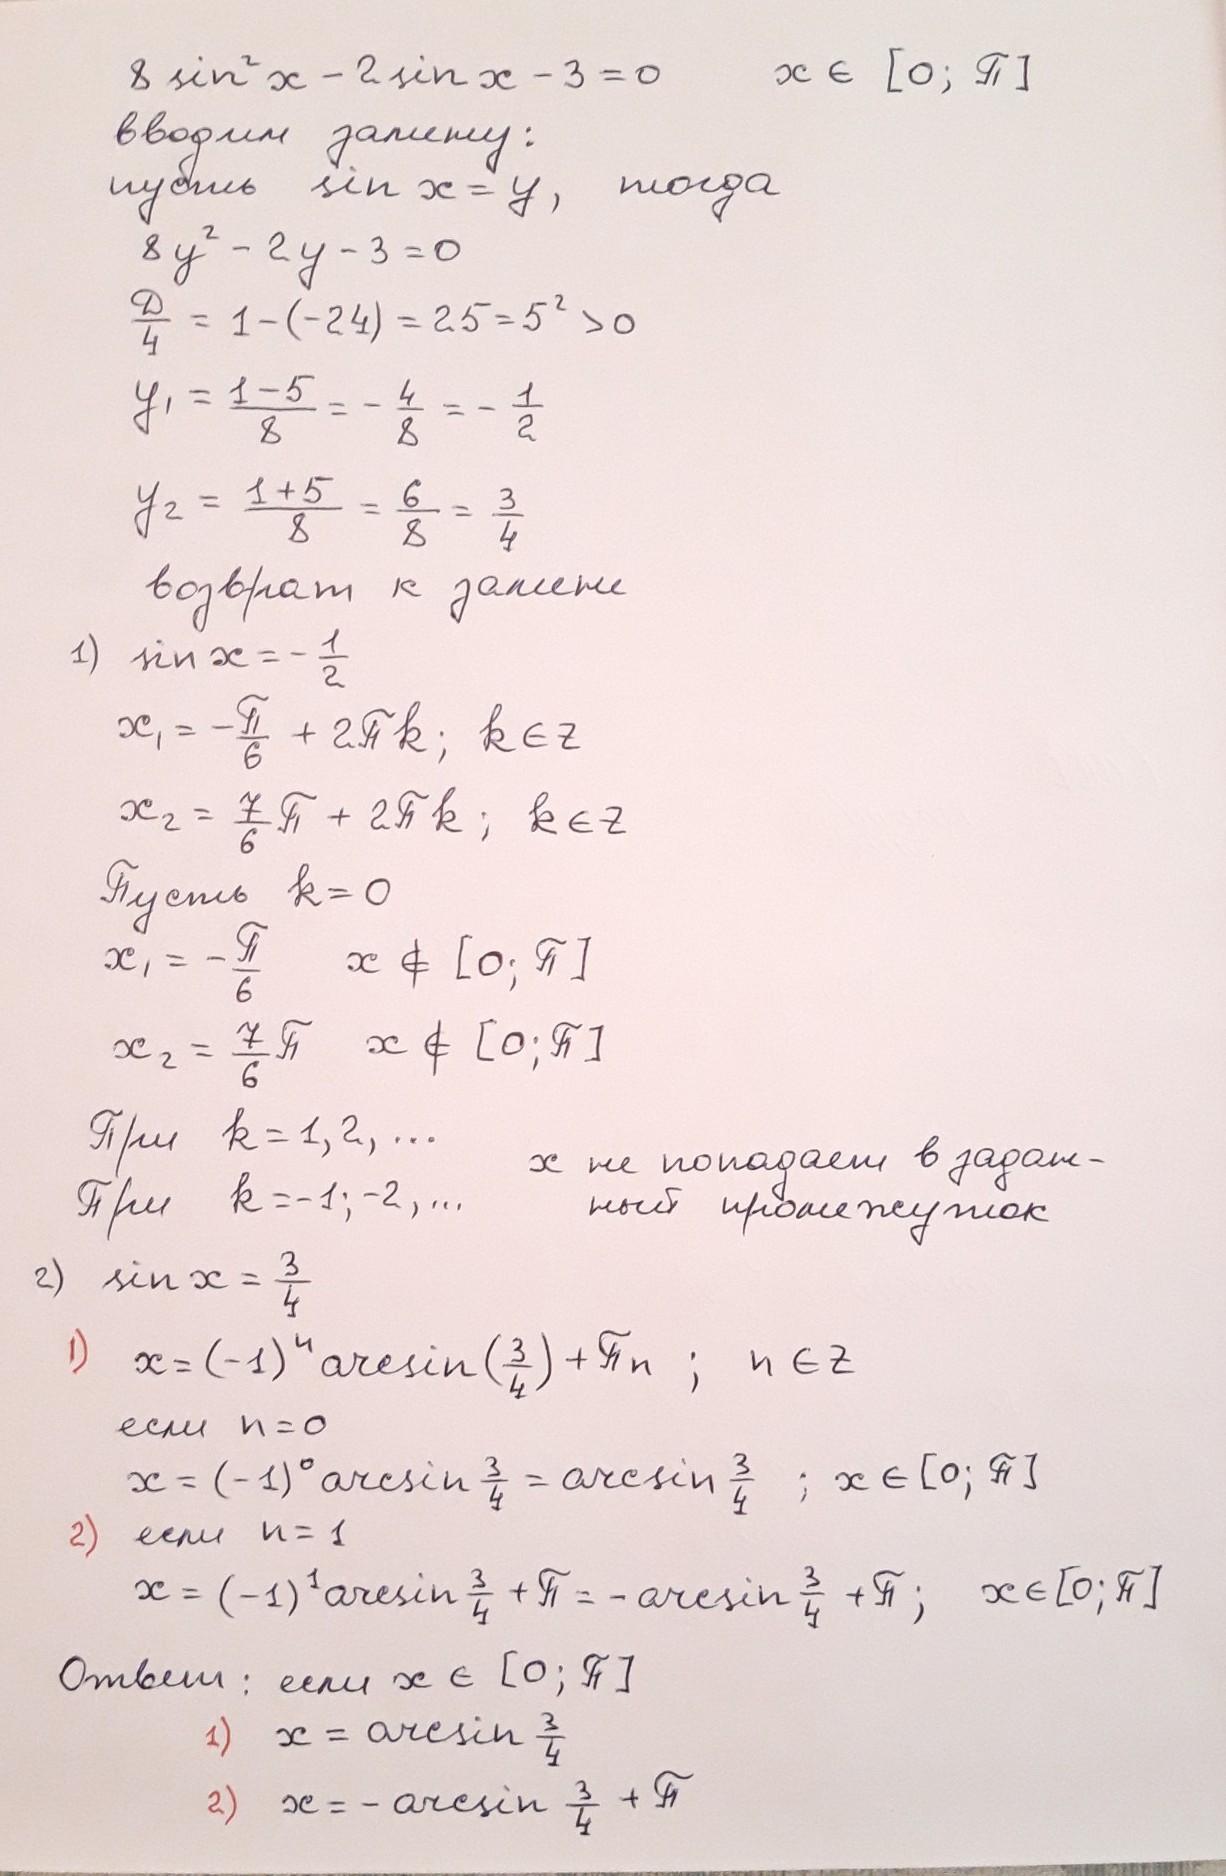 8 sin²x - 2 sin x - 3 = 0 x ∈ [0; π]
вводим замену:
пусть sin x = y, тогда
8y² - 2y - 3 = 0
Д/4 = 1 - (-24) = 25 = 5² > 0
y₁ = (1-5)/8 = - 4/8 = - 1/2
y₂ = (1+5)/8 = 6/8 = 3/4
возврат к замене
1) sin x = - 1/2
x₁ = - π/6 + 2πk; k ∈ z
x₂ = 7/6 π + 2πk; k ∈ z
Пусть k = 0
x₁ = - π/6 x ∉ [0; π]
x₂ = 7/6 π x ∉ [0; π]
При k = 1, 2, ...
При k = -1; -2, ...
x не попадает в задан-
ный промежуток
2) sin x = 3/4
1) x = (-1)ⁿ arcsin(3/4) + πn ; n ∈ z
если n = 0
x = (-1)⁰ arcsin 3/4 = arcsin 3/4 ; x ∈ [0; π]
2) если n = 1
x = (-1)¹ arcsin 3/4 + π = - arcsin 3/4 + π; x ∈ [0; π]
Ответ: если x ∈ [0; π]
1) x = arcsin 3/4
2) x = - arcsin 3/4 + π